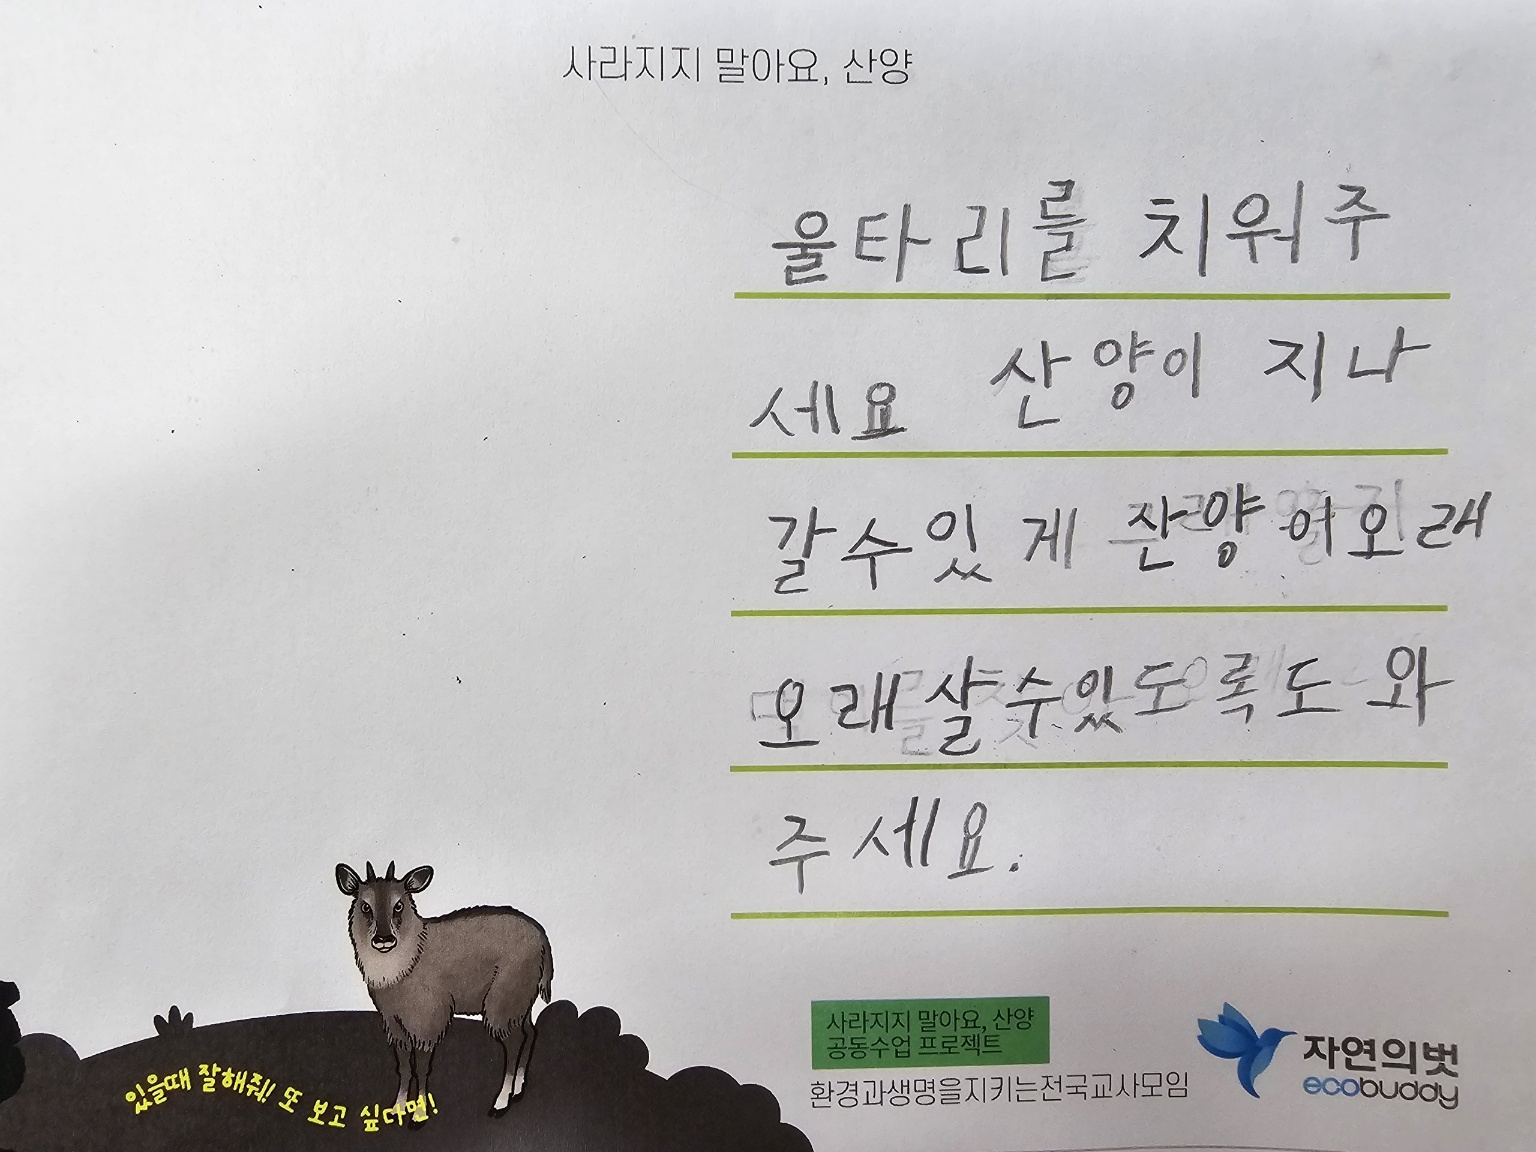 사라지지 말아요, 산양
울타리를 치워주
세요 산양이 지나
갈수있게 산양이오래
오래살수있도록도와
주세요.
있을때 잘해줘! 또 보고 싶다면!
사라지지 말아요, 산양
공동수업 프로젝트
환경과생명을지키는전국교사모임
자연의벗
ecobuddy